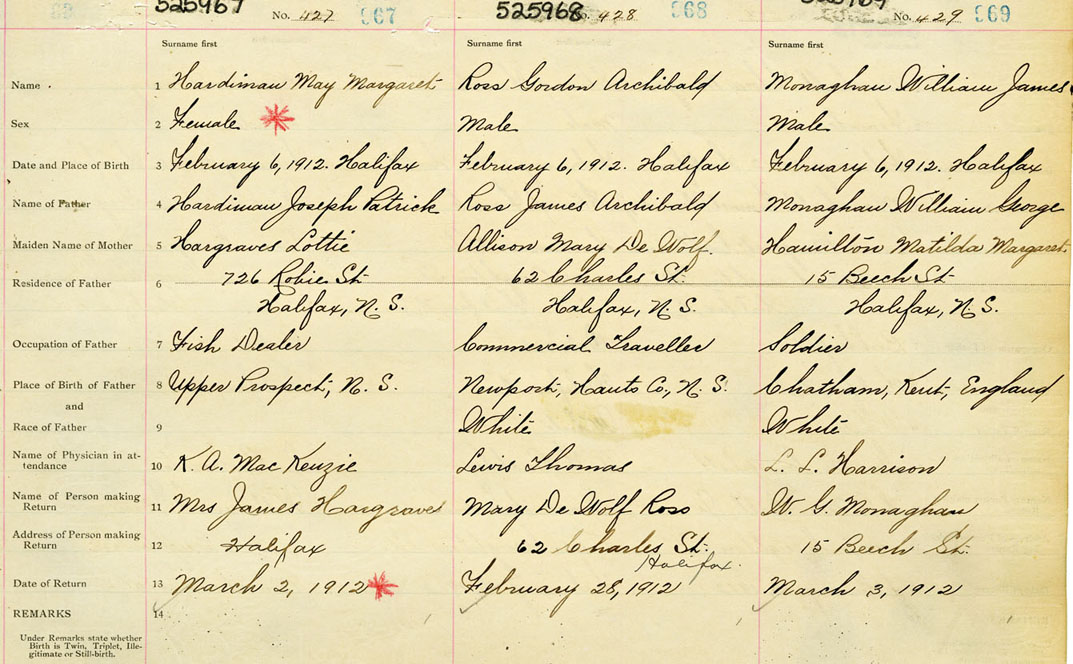 525967 525968
No. 427 967 428 968 No. 429 969
Surname first Surname first Surname first
Name . 1 Hardiman May Margaret Ross Gordon Archibald Monaghan William James
Sex 2 Female Male Male
Date and Place of Birth 3 February 6, 1912. Halifax February 6, 1912. Halifax February 6, 1912. Halifax
Name of Father 4 Hardiman Joseph Patrick Ross James Archibald Monaghan William George
Maiden Name of Mother 5 Hargraves Lottie Allison Mary De Wolf. Hamilton Matilda Margaret.
Residence of Father 6 726 Robie St. 62 Charles St. 15 Beech St
Halifax, N. S. Halifax, N. S. Halifax, N. S.
Occupation of Father 7 Fish Dealer Commercial Traveller Soldier
Place of Birth of Father 8 Upper Prospect, N. S. Newport, Hants Co., N. S. Chatham, Kent, England
and
Race of Father 9 White White
Name of Physician in at-
tendance 10 K. A. Mac Kenzie Lewis Thomas L. L. Harrison
Name of Person making
Return 11 Mrs James Hargraves Mary De Wolf Ross W. G. Monaghan
Address of Person making
Return 12 Halifax 62 Charles St. 15 Beech St.
Halifax.
Date of Return 13 March 2, 1912 February 28, 1912 March 3, 1912
REMARKS 14
Under Remarks state whether
Birth is Twin, Triplet, Ille-
gitimate or Still-birth.